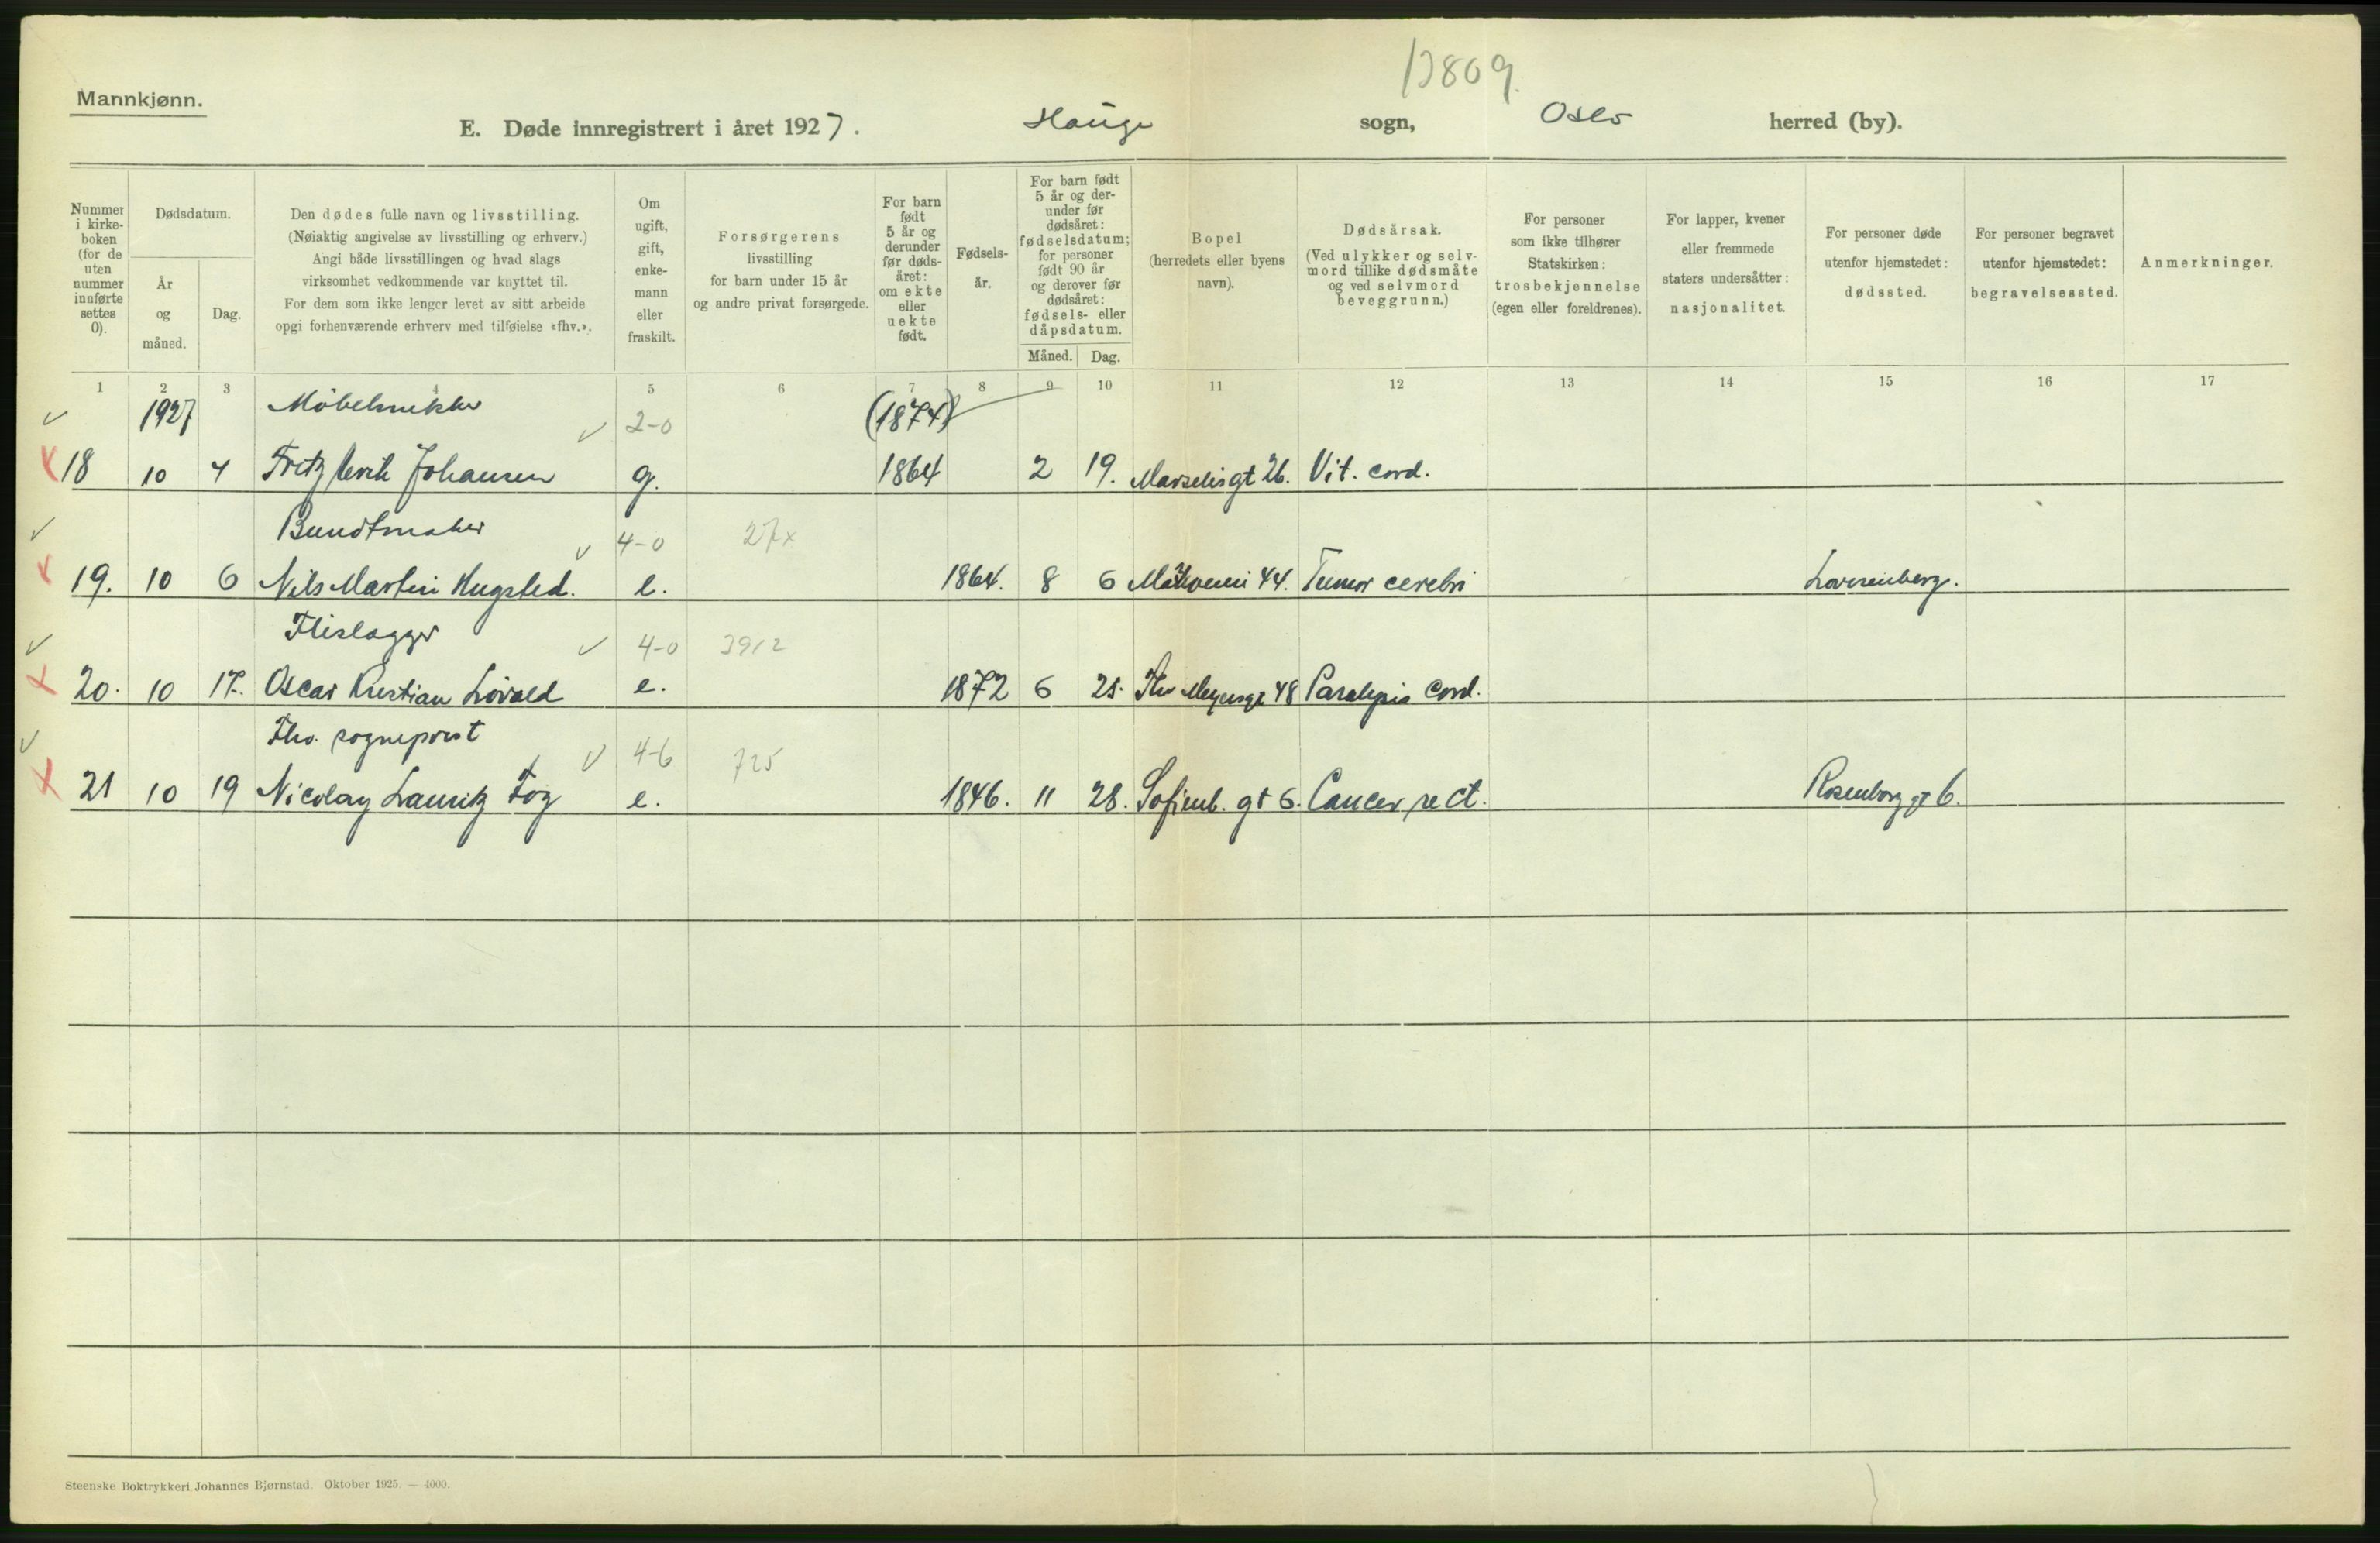 13809.
Mannkjønn.
E. Døde innregistrert i året 1927. Hauge sogn, Oslo herred (by).
Nummer i kirkeboken (for de uten nummer innførte settes 0).
Dødsdatum.
År og måned.
Dag.
Den dødes fulle navn og livsstilling.
(Nøiaktig angivelse av livsstilling og erhverv.)
Angi både livsstillingen og hvad slags
virksomhet vedkommende var knyttet til.
For dem som ikke lenger levet av sitt arbeide
opgi forhenværende erhverv med tilføielse «fhv.».
Om ugift, gift, enkemann eller fraskilt.
Forsørgerens
livsstilling
for barn under 15 år
og andre privat forsørgede.
For barn født 5 år og derunder før dødsåret: om ekte eller uekte født.
Fødselsår.
For barn født 5 år og derunder før dødsåret: fødselsdatum; for personer født 90 år og derover før dødsåret: fødsels- eller dåpsdatum.
Måned. Dag.
Bopel
(herredets eller byens
navn).
Dødsårsak.
(Ved ulykker og selvmord tillike dødsmåte og ved selvmord beveggrunn.)
For personer
som ikke tilhører
Statskirken:
trosbekjennelse
(egen eller foreldrenes).
For lapper, kvener
eller fremmede
staters undersåtter:
nasjonalitet.
For personer døde
utenfor hjemstedet:
dødssted.
For personer begravet
utenfor hjemstedet:
begravelsessted.
Anmerkninger.
1 2 3 4 5 6 7 8 9 10 11 12 13 14 15 16 17
1927 Møbelsnekker 2-0 (1874)
18 10 4 Fritz Henrik Johansen g. 1864 2 19. Marselisgt 26. Vit. cord.
Bundtmaker 4-0 27x
19. 10 6 Nils Martin Hugsted. e. 1864. 8 6 44. Tumor cerebri Lovisenberg.
Flislegger 4-0 3912
20. 10 17. Oscar Kristian Lövold e. 1872 6 25. Thv Meyersgt 48 Paralysis Cord.
Fhv. sogneprest 4-6 725
21 10 19 Nicolay Lauritz Fog e. 1846. 11 28. Sofienb. gt 6. Cancer rect. Rosenborg gt 6.
Steenske Boktrykkeri Johannes Bjørnstad. Oktober 1925. — 4000.